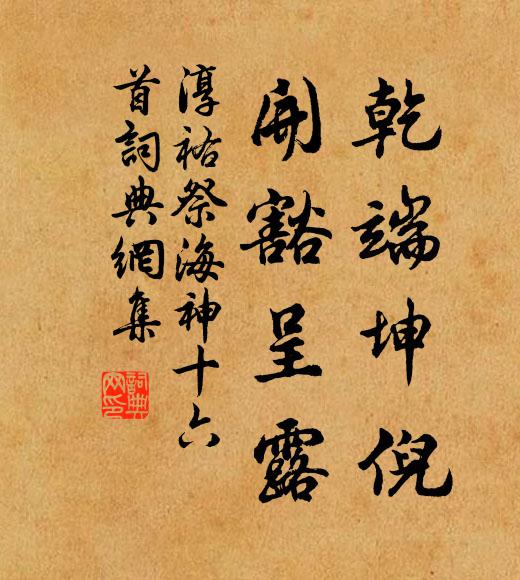 乾端坤倪
開豁呈露
淳祐祭海神十六
首詞典網集
詞典網印